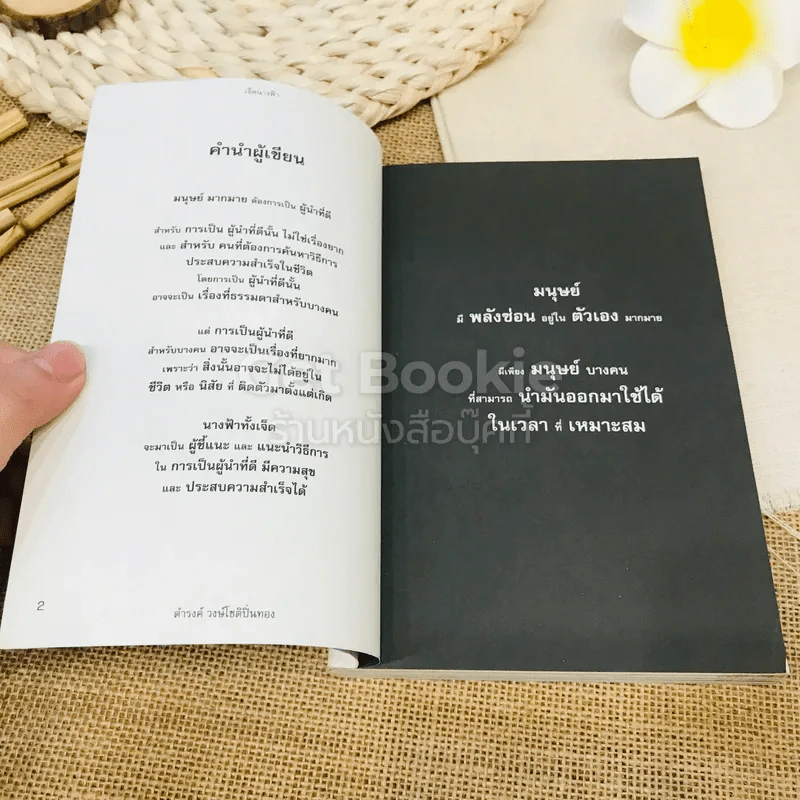 เจ็ดนางฟ้า
คำนำผู้เขียน
มนุษย์ มากมาย ต้องการเป็น ผู้นำที่ดี
สำหรับ การเป็น ผู้นำที่ดีนั้น ไม่ใช่เรื่องยาก
และ สำหรับ คนที่ต้องการค้นหาวิธีการ
ประสบความสำเร็จในชีวิต
โดยการเป็น ผู้นำที่ดีนั้น
อาจจะเป็น เรื่องที่ธรรมดาสำหรับบางคน
แต่ การเป็นผู้นำที่ดี
สำหรับบางคน อาจจะเป็นเรื่องที่ยากมาก
เพราะว่า สิ่งนั้นอาจจะไม่ได้อยู่ใน
ชีวิต หรือ นิสัย ที่ ติดตัวมาตั้งแต่เกิด
นางฟ้าทั้งเจ็ด
จะมาเป็น ผู้ชี้แนะ และ แนะนำวิธีการ
ใน การเป็นผู้นำที่ดี มีความสุข
และ ประสบความสำเร็จได้
2
ดำรงค์ วงษ์โชติปิ่นทอง
มนุษย์
มี พลังซ่อน อยู่ใน ตัวเอง มากมาย
มีเพียง มนุษย์ บางคน
ที่สามารถ นำมันออกมาใช้ได้
ในเวลา ที่ เหมาะสม
Get Bookie
ร้านหนังสือบุ๊คกี้